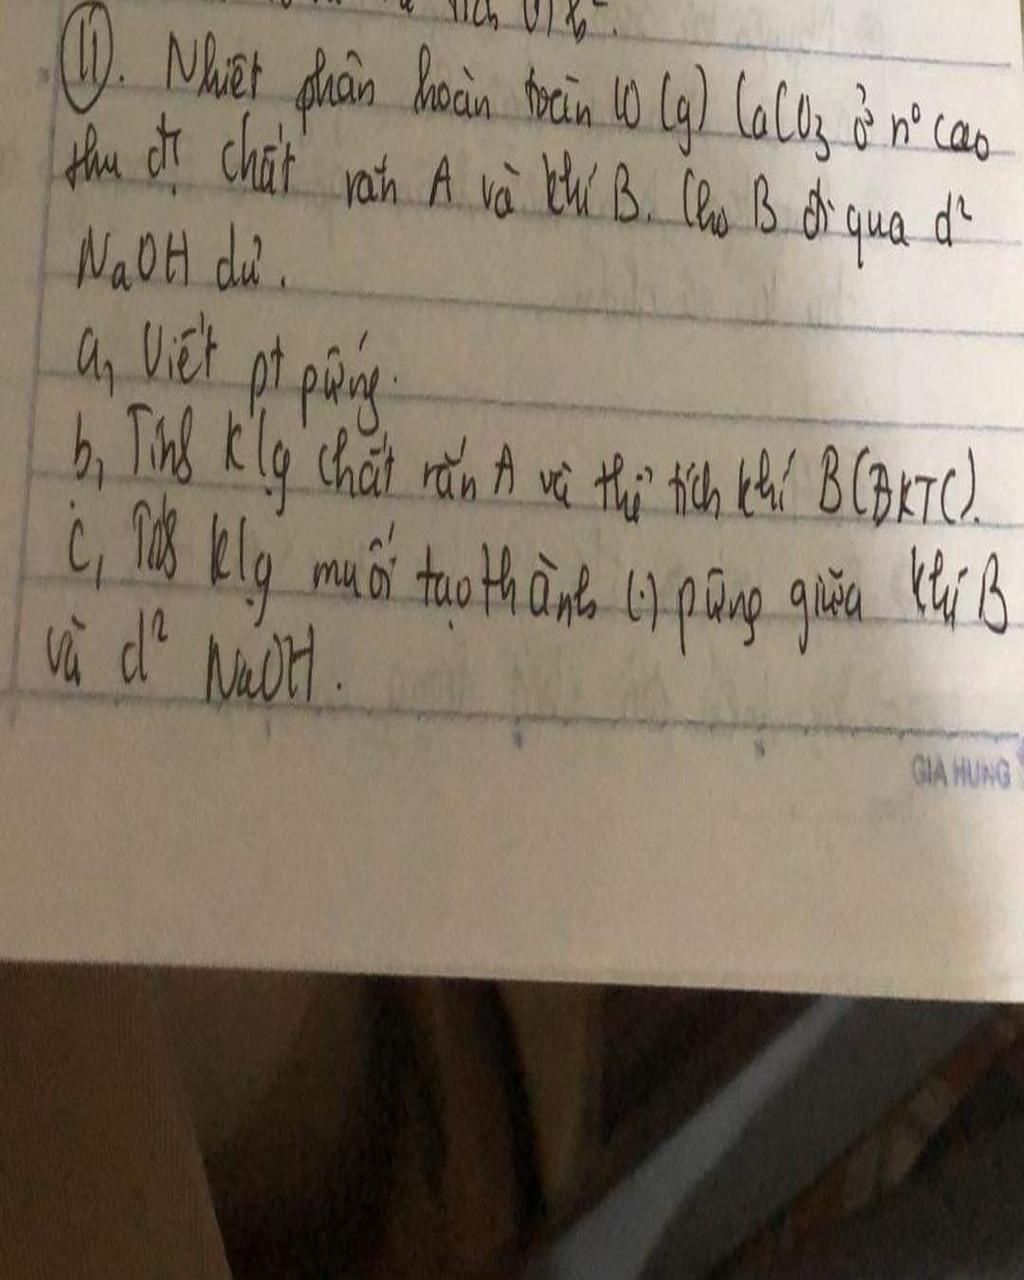 tích
11. Nhiệt phân hoàn toàn 10 (g) CaCO3 ở n° cao
thu đc chất rắn A và khí B. Cho B đi qua d²
NaOH dư.
a, Viết pt pứng.
b, Tính klg chất rắn A và thể tích khí B (ĐKTC).
c, Tính klg muối tạo thành (.) pứng giữa khí B
và d² NaOH.
GIA HUNG